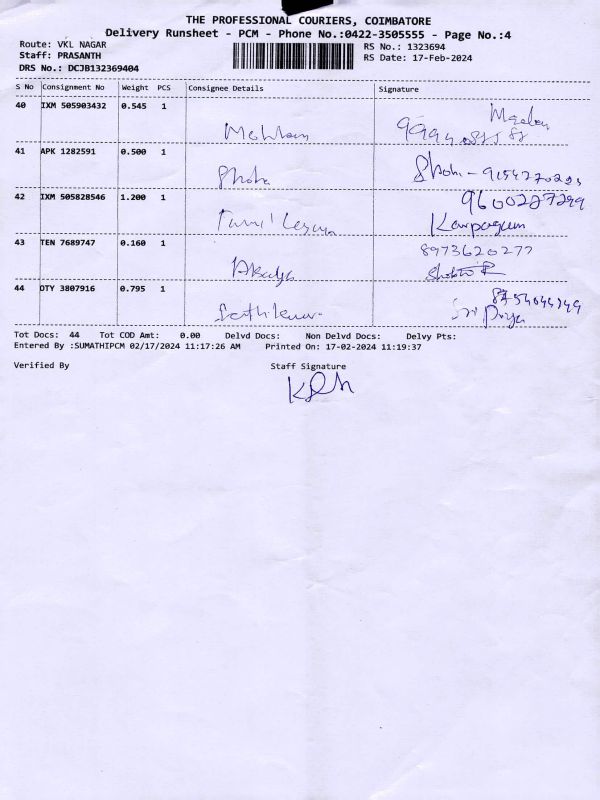 THE PROFESSIONAL COURIERS, COIMBATORE
Delivery Runsheet - PCM - Phone No.:0422-3505555 - Page No.:4
Route: VKL NAGAR
RS No.: 1323694
Staff: PRASANTH
RS Date: 17-Feb-2024
DRS No.: DCJB132369404
S No Consignment No Weight PCS Consignee Details Signature
40 IXM 505903432 0.545 1
41 APK 1282591 0.500 1 Shoba
42 IXM 505828546 1.200 1 9600287299
Karpagam
43 TEN 7689747 0.160 1 8973620277
44 DTY 3807916 0.795 1
Sri Priya
Tot Docs: 44 Tot COD Amt: 0.00 Delvd Docs: Non Delvd Docs: Delvy Pts:
Entered By :SUMATHIPCM 02/17/2024 11:17:26 AM Printed On: 17-02-2024 11:19:37
Verified By Staff Signature